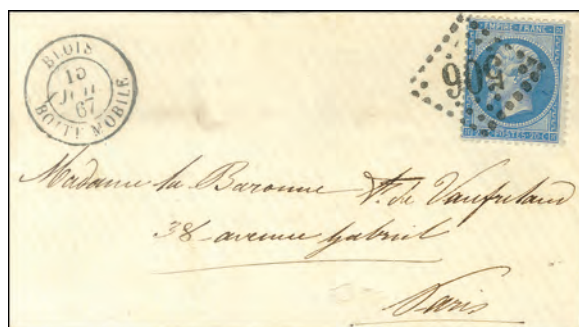 BLOIS
15
67
BOITE MOBILE
506
EMPIRE FRANC
POSTES 20 C
Madame la Baronne V. de Vaufreland
38 avenue Gabriel
Paris